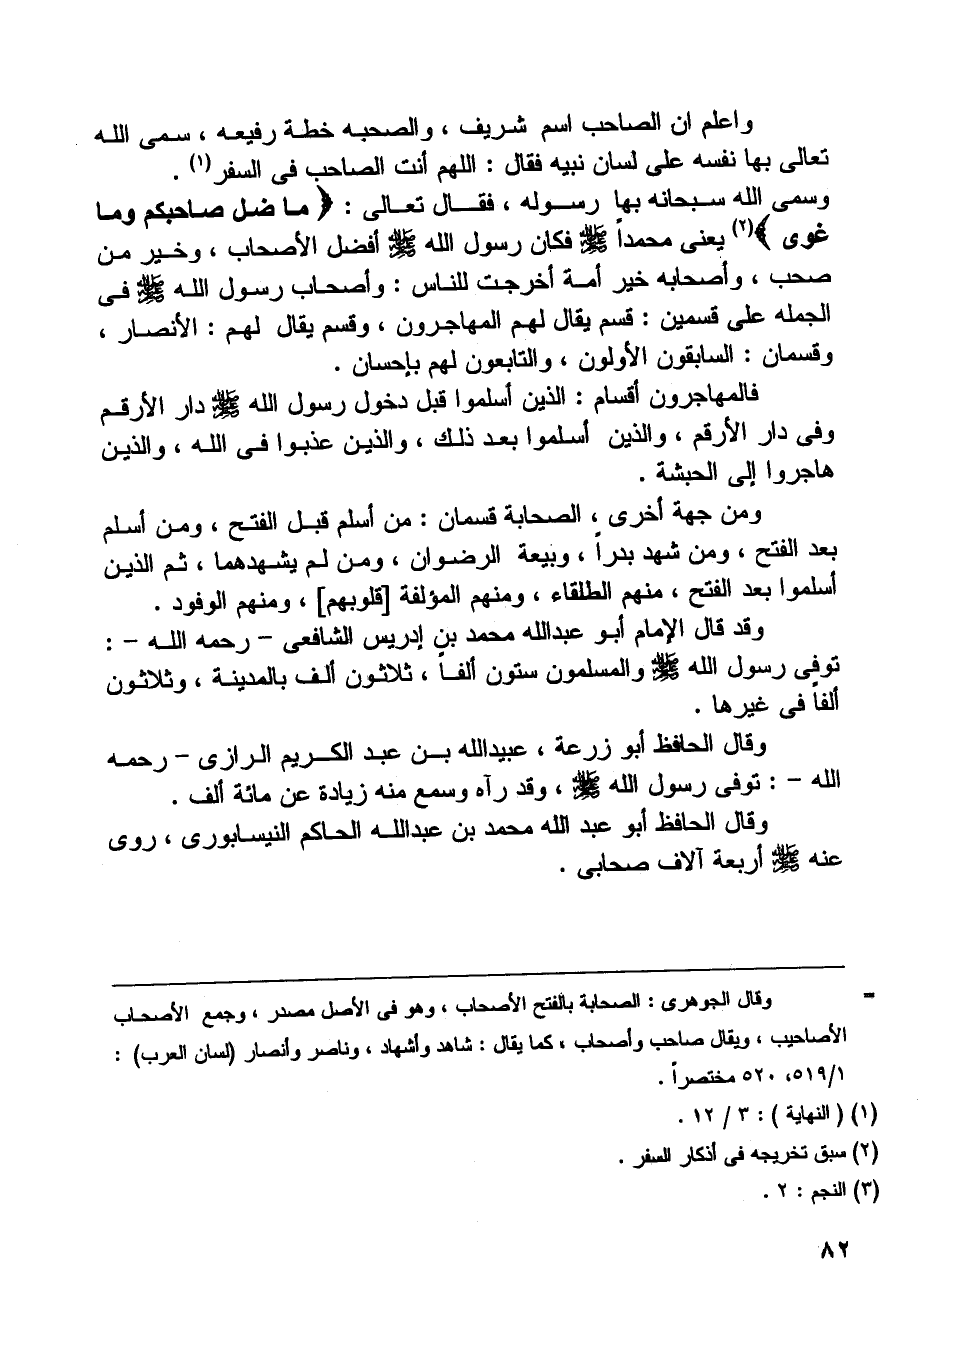 واعلم ان الصاحب اسم شريف ، والصحبه خطة رفيعه ، سمى الله
تعالى بها نفسه على لسان نبيه فقال : اللهم أنت الصاحب فى السفر (١) .
وسمى الله سبحانه بها رسوله ، فقال تعالى : ﴿ ما ضل صاحبكم وما
غوى ﴾(٢) يعنى محمداً ﷺ فكان رسول الله ﷺ أفضل الأصحاب ، وخير من
صحب ، وأصحابه خير أمة أخرجت للناس : وأصحاب رسول الله ﷺ فى
الجمله على قسمين : قسم يقال لهم المهاجرون ، وقسم يقال لهم : الأنصار ،
وقسمان : السابقون الأولون ، والتابعون لهم بإحسان .
فالمهاجرون أقسام : الذين أسلموا قبل دخول رسول الله ﷺ دار الأرقم
وفى دار الأرقم ، والذين أسلموا بعد ذلك ، والذين عذبوا فى الله ، والذين
هاجروا إلى الحبشة .
ومن جهة أخرى ، الصحابة قسمان : من أسلم قبل الفتح ، ومن أسلم
بعد الفتح ، ومن شهد بدراً ، وبيعة الرضوان ، ومن لم يشهدهما ، ثم الذين
أسلموا بعد الفتح ، منهم الطلقاء ، ومنهم المؤلفة [قلوبهم] ، ومنهم الوفود .
وقد قال الإمام أبو عبدالله محمد بن إدريس الشافعى – رحمه الله – :
توفى رسول الله ﷺ والمسلمون ستون ألفاً ، ثلاثون ألف بالمدينة ، وثلاثون
ألفاً فى غيرها .
وقال الحافظ أبو زرعة ، عبيدالله بن عبد الكريم الرازى – رحمه
الله – : توفى رسول الله ﷺ ، وقد رآه وسمع منه زيادة عن مائة ألف .
وقال الحافظ أبو عبد الله محمد بن عبدالله الحاكم النيسابورى ، روى
عنه ﷺ أربعة آلاف صحابى .
= وقال الجوهرى : الصحابة بالفتح الأصحاب ، وهو فى الأصل مصدر ، وجمع الأصحاب
الأصاحيب ، ويقال صاحب وأصحاب ، كما يقال : شاهد وأشهاد ، وناصر وأنصار (لسان العرب) :
٥١٩/١، ٥٢٠ مختصراً .
(١) ( النهاية ) : ٣ / ١٢ .
(٢) سبق تخريجه فى أذكار السفر .
(٣) النجم : ٢ .
٨٢